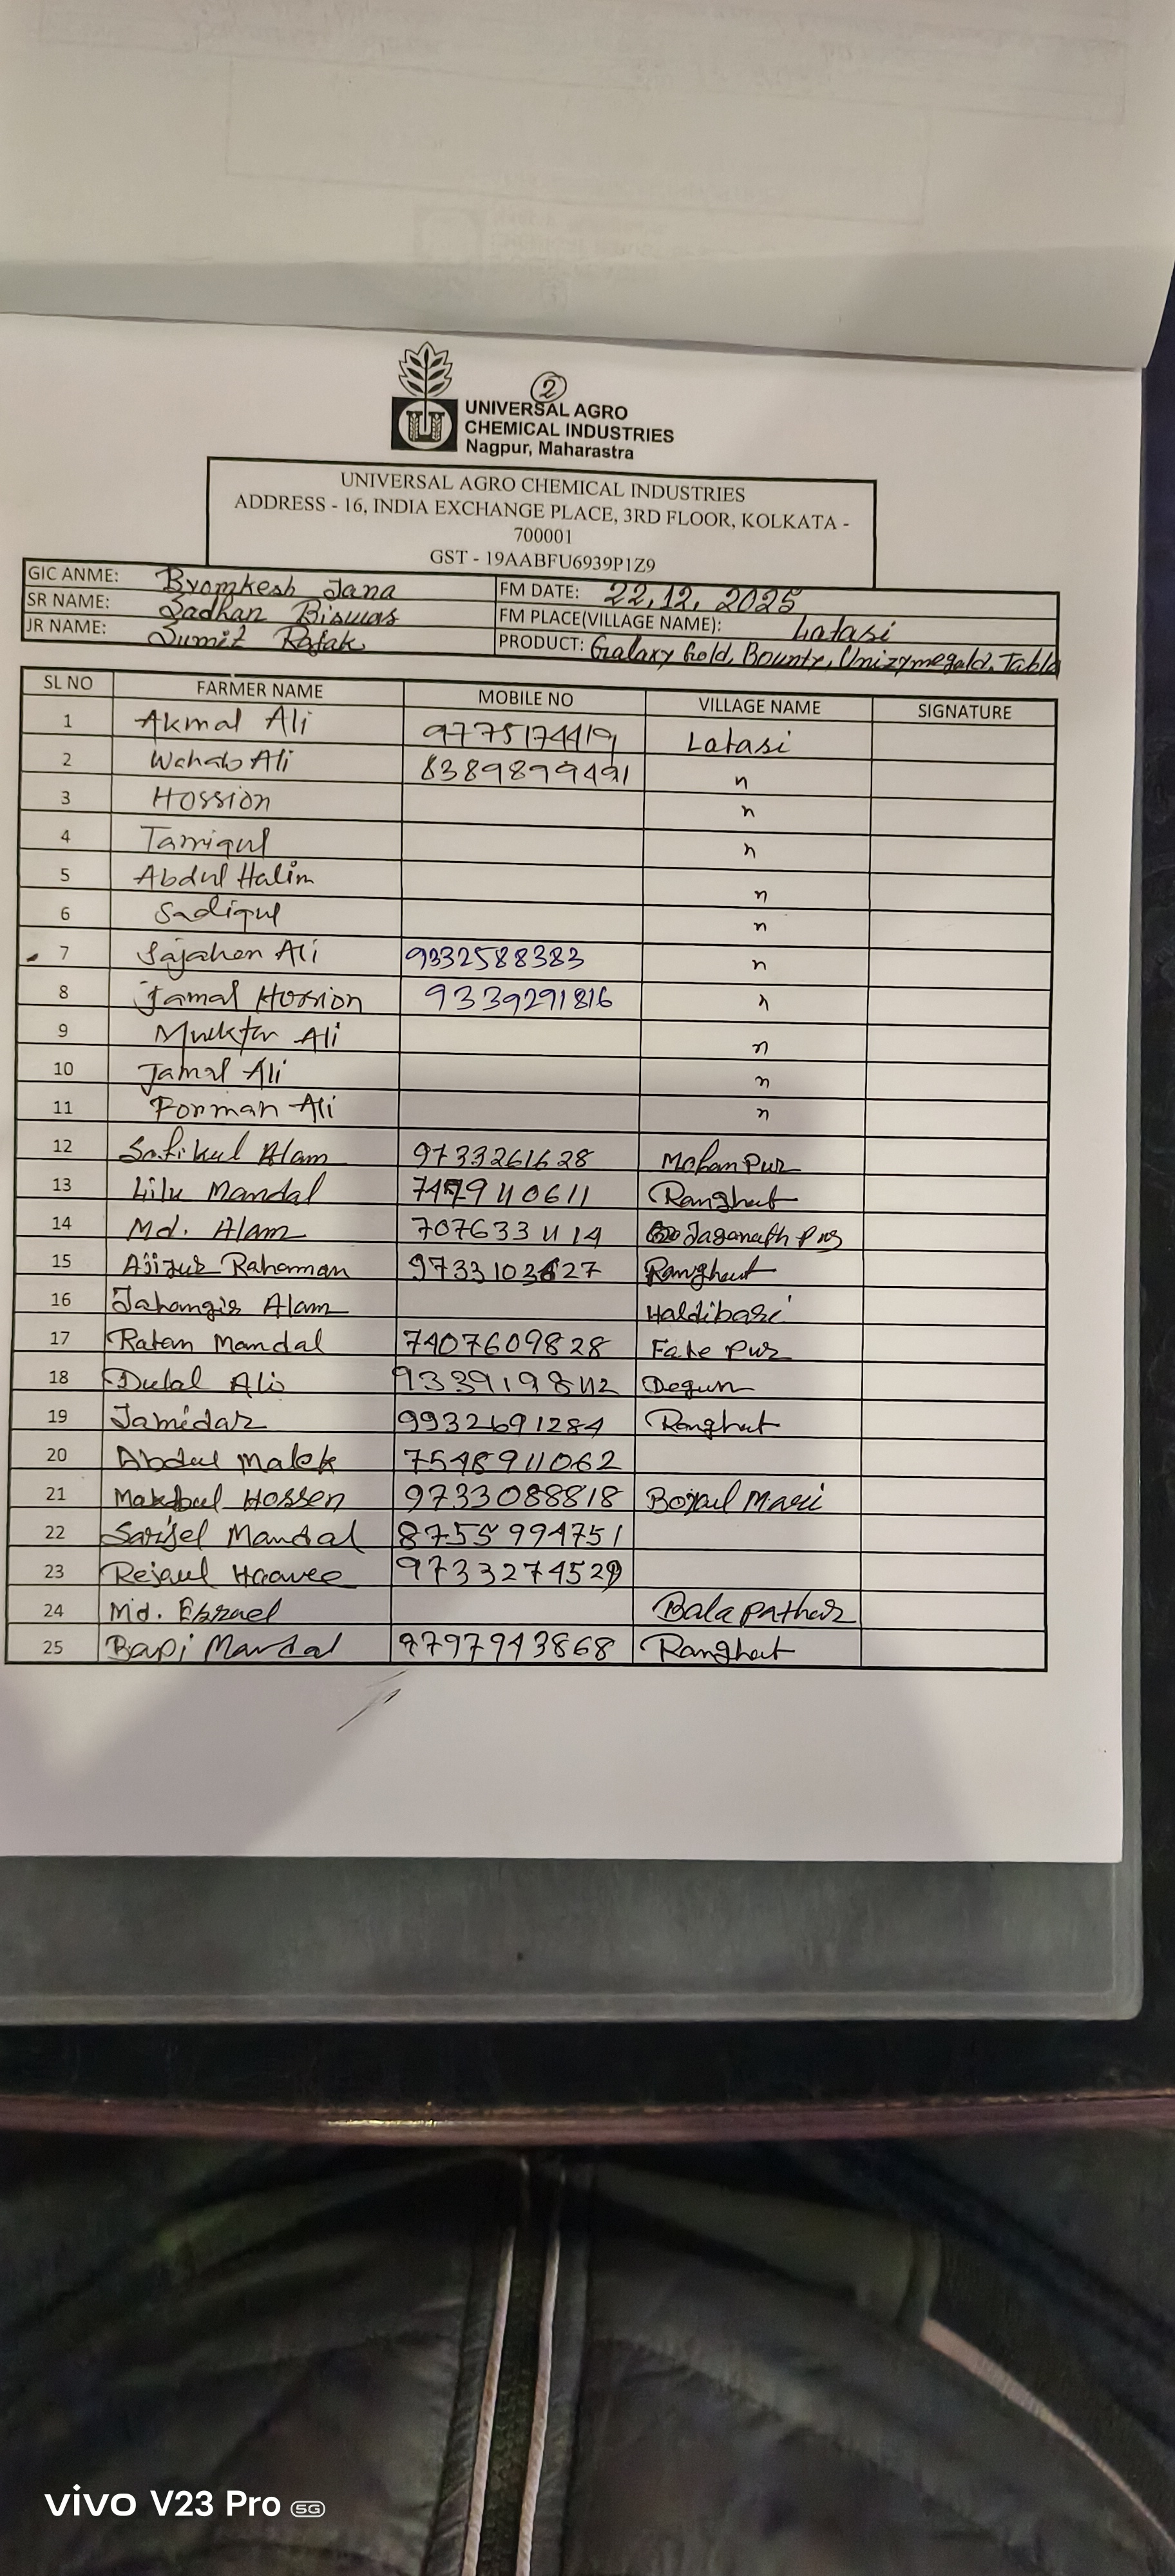 2
UNIVERSAL AGRO
CHEMICAL INDUSTRIES
Nagpur, Maharastra
UNIVERSAL AGRO CHEMICAL INDUSTRIES
ADDRESS - 16, INDIA EXCHANGE PLACE, 3RD FLOOR, KOLKATA -
700001
GST - 19AABFU6939P1Z9
GIC ANME: Byomkesh Jana FM DATE: 22.12.2025
SR NAME: Sadhan Biswas FM PLACE(VILLAGE NAME): Latasi
JR NAME: Sumit Rajak PRODUCT: Galaxy Gold, Bounty, Unizymegold, Tabla
SL NO FARMER NAME MOBILE NO VILLAGE NAME SIGNATURE
1 Akmal Ali 9775174419 Latasi
2 Wahab Ali 8389899491 "
3 Hossion "
4 Tamiqul "
5 Abdul Halim "
6 Sadiqul "
7 Sajahan Ali 9332588383 "
8 Jamal Hossion 9339291816 "
9 Muktar Ali "
10 Jamal Ali "
11 Forman Ali "
12 Safikul Alam 9733261628 Mohanpur
13 Lilu Mandal Ranghat
14 Md. Alam Jaganath Pur
15 Ajijur Rahaman Ranghat
16 Jahangir Alam Haldibari
17 Ratan Mandal 7407609828 Fatepur
18 Dulal Ali Degun
19 Jamidar 9932691284 Ranghat
20 Abdul Malek 7548911062
21 Makbul Hossen 9733088818
22 Mandal 8755994751
23 Rejaul
24 Md. Bala pathar
25 Bapi Mandal 9797943868 Ranghat
vivo V23 Pro 5G